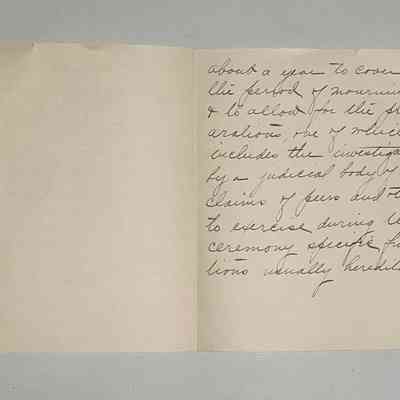 about a year to cover
the period of mourni
& to allow for the p
arations, one of which
includes the investiga
by a judicial body of
claims of peers and
to exercise during
ceremony specific fu
tions usually heredit